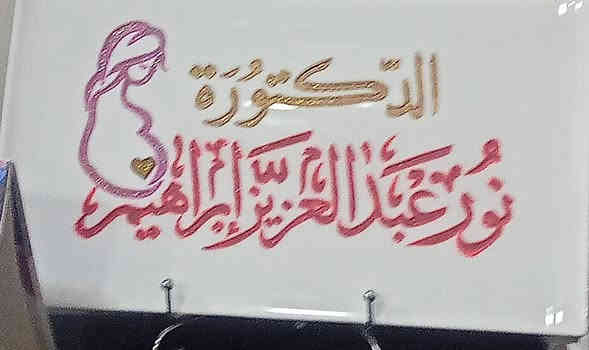 الدّكتورَة
نُور عَبدَ العزيز إبراهيم